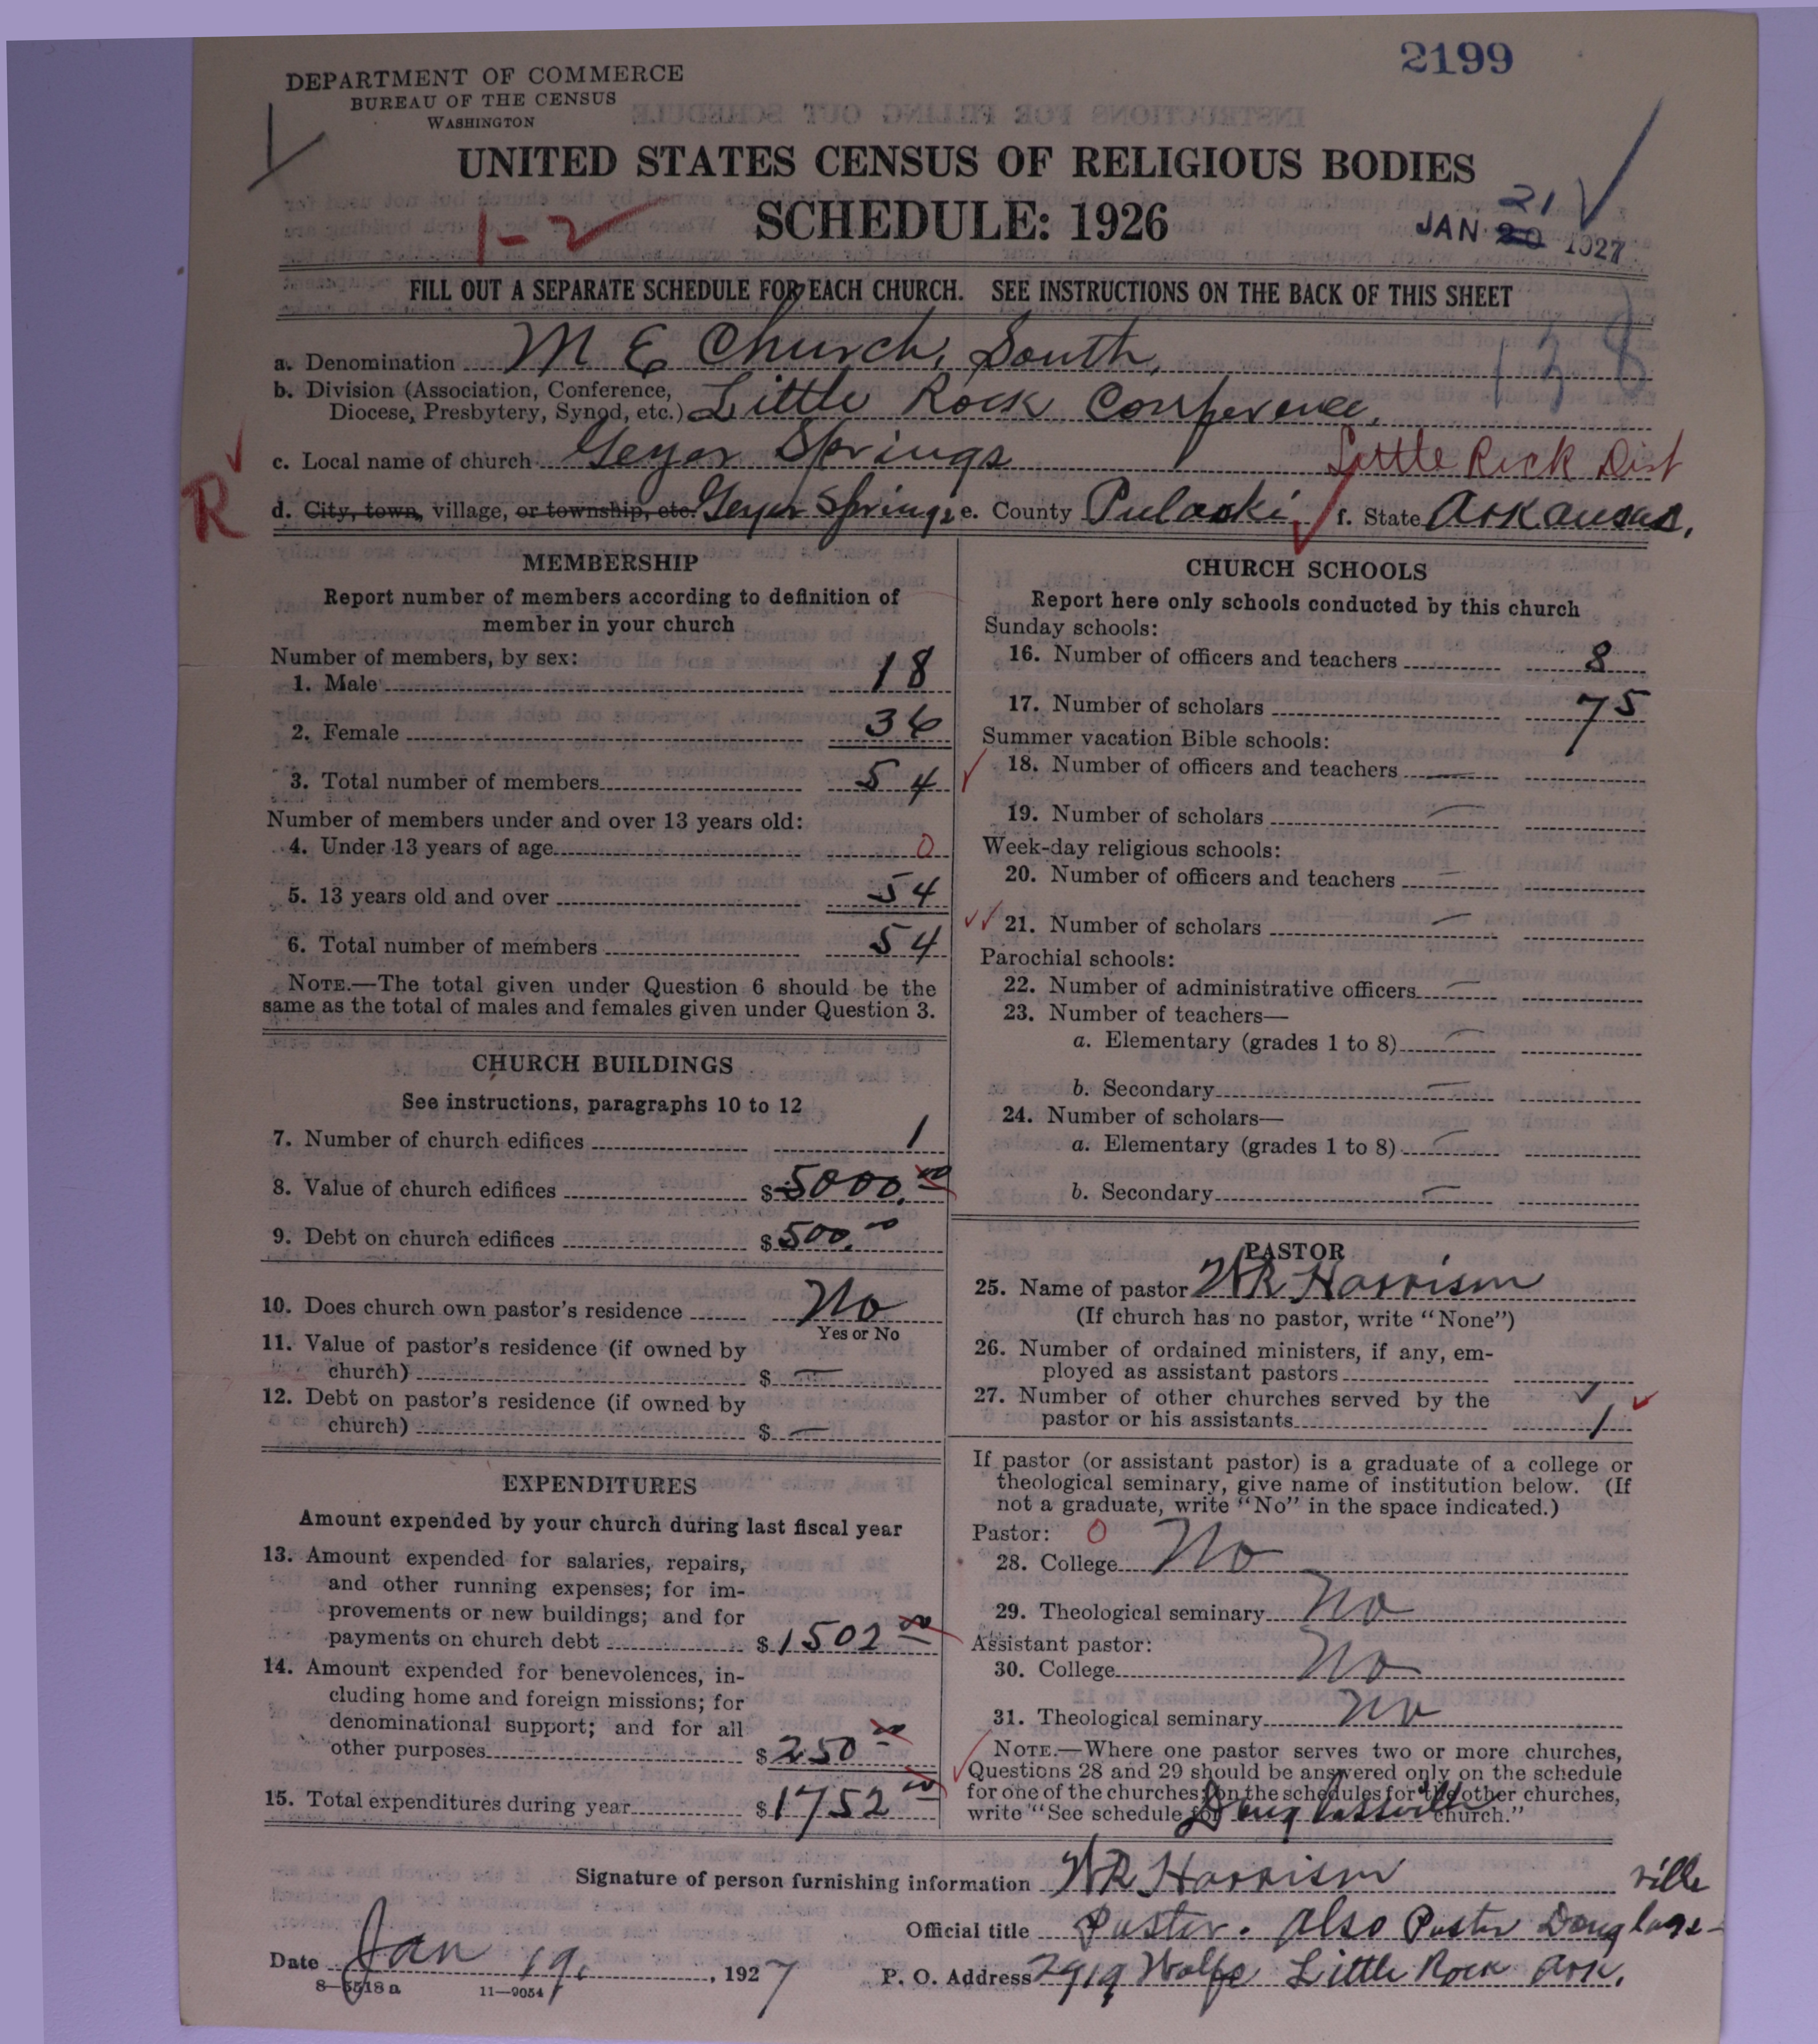 2199
DEPARTMENT OF COMMERCE
BUREAU OF THE CENSUS
WASHINGTON
UNITED STATES CENSUS OF RELIGIOUS BODIES
1-2
SCHEDULE: 1926
21
JAN 20 1927
FILL OUT A SEPARATE SCHEDULE FOR EACH CHURCH. SEE INSTRUCTIONS ON THE BACK OF THIS SHEET
138
a. Denomination M E Church, South,
b. Division (Association, Conference,
Diocese, Presbytery, Synod, etc.) Little Rock Conference,
c. Local name of church Geyer Springs Little Rock Dist
R
d. City, town, village, or township, etc. Geyer Springs e. County Pulaski f. State Arkansas,
MEMBERSHIP
Report number of members according to definition of
member in your church
Number of members, by sex:
1. Male 18
2. Female 36
3. Total number of members 54
Number of members under and over 13 years old:
4. Under 13 years of age 0
5. 13 years old and over 54
6. Total number of members 54
NOTE.—The total given under Question 6 should be the
same as the total of males and females given under Question 3.
CHURCH BUILDINGS
See instructions, paragraphs 10 to 12
7. Number of church edifices 1
8. Value of church edifices $5000.00
9. Debt on church edifices $500.00
10. Does church own pastor's residence No
Yes or No
11. Value of pastor's residence (if owned by
church) $ —
12. Debt on pastor's residence (if owned by
church) $ —
EXPENDITURES
Amount expended by your church during last fiscal year
13. Amount expended for salaries, repairs,
and other running expenses; for im-
provements or new buildings; and for
payments on church debt $1502 00
14. Amount expended for benevolences, in-
cluding home and foreign missions; for
denominational support; and for all
other purposes $250 00
15. Total expenditures during year $1752 00
CHURCH SCHOOLS
Report here only schools conducted by this church
Sunday schools:
16. Number of officers and teachers 8
17. Number of scholars 75
Summer vacation Bible schools:
18. Number of officers and teachers —
19. Number of scholars —
Week-day religious schools:
20. Number of officers and teachers —
21. Number of scholars —
Parochial schools:
22. Number of administrative officers —
23. Number of teachers—
a. Elementary (grades 1 to 8) —
b. Secondary —
24. Number of scholars—
a. Elementary (grades 1 to 8) —
b. Secondary —
PASTOR
25. Name of pastor WR Harrison
(If church has no pastor, write "None")
26. Number of ordained ministers, if any, em-
ployed as assistant pastors
27. Number of other churches served by the
pastor or his assistants 1
If pastor (or assistant pastor) is a graduate of a college or
theological seminary, give name of institution below. (If
not a graduate, write "No" in the space indicated.)
Pastor: 0
28. College No
29. Theological seminary No
Assistant pastor:
30. College No
31. Theological seminary No
NOTE.—Where one pastor serves two or more churches,
Questions 28 and 29 should be answered only on the schedule
for one of the churches; on the schedules for the other churches,
write "See schedule for Douglassville church."
Signature of person furnishing information WR Harrison
Official title Pastor. also Pastor Douglass-
ville
Date Jan 19, 1927
P. O. Address 2919 Wolfe Little Rock Ark.
8-5518 a 11-9054